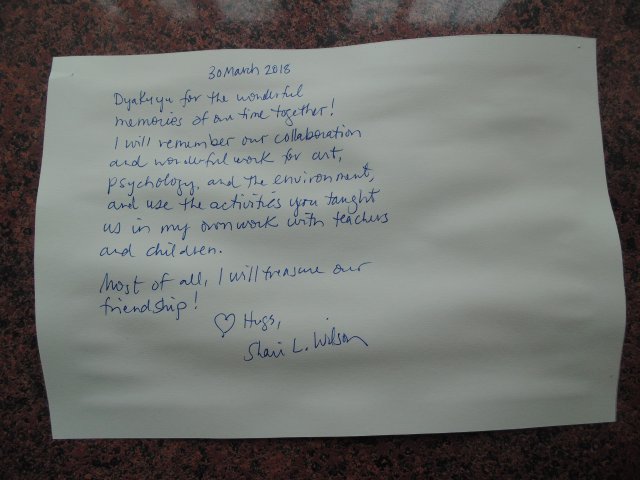 30 March 2018
Dyakuyu for the wonderful
memories of our time together!
I will remember our collaboration
and wonderful work for art,
psychology, and the environment,
and use the activities you taught
us in my own work with teachers
and children.
Most of all, I will treasure our
friendship!
♡ Hugs,
Shari L. Wilson